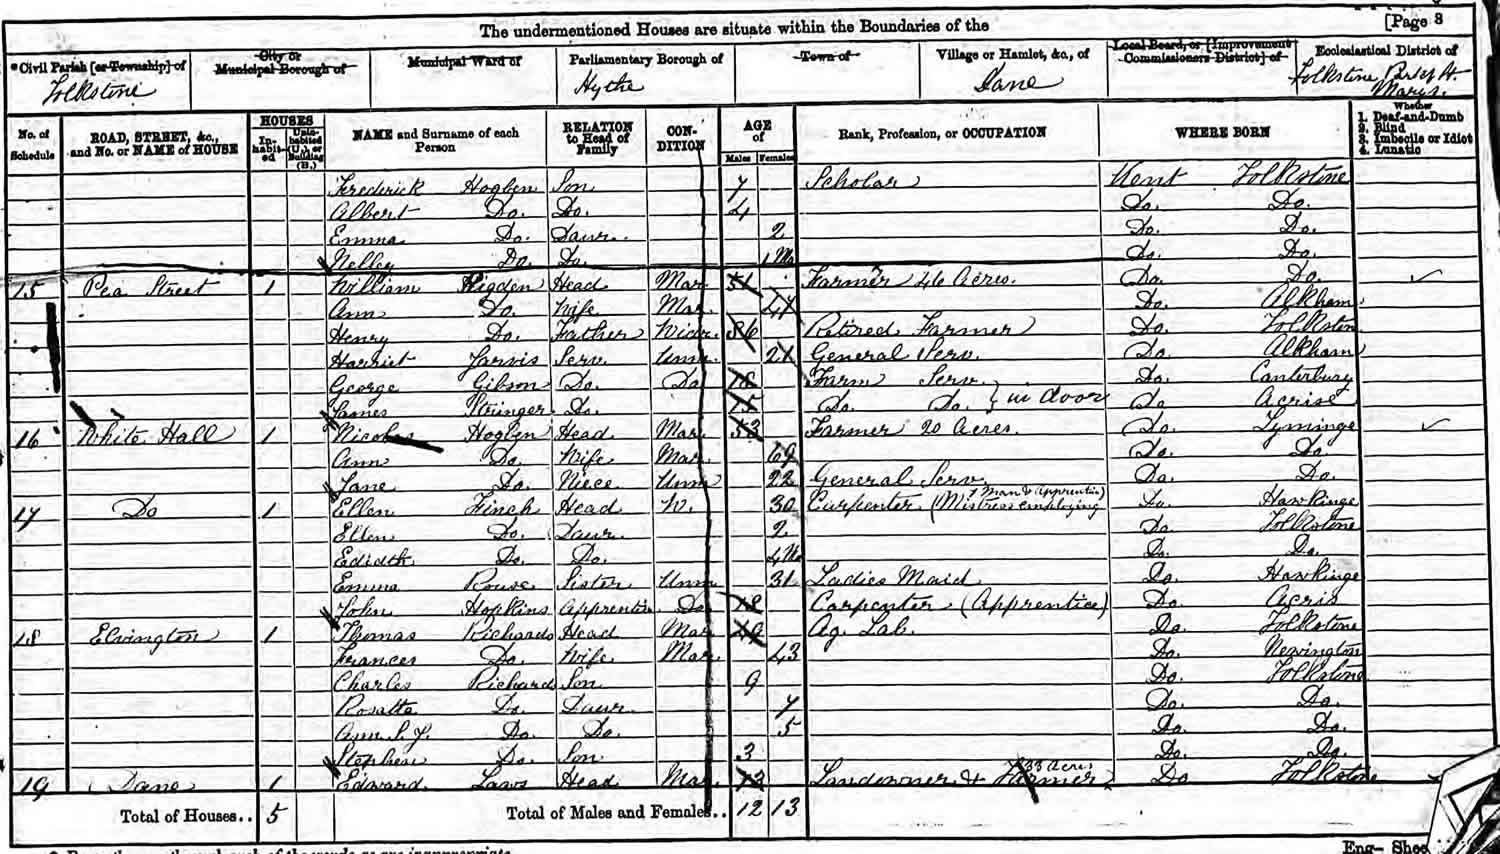 [Page 8
The undermentioned Houses are situate within the Boundaries of the
*Civil Parish [or Township] of City or Municipal Borough of Municipal Ward of Parliamentary Borough of Town of Village or Hamlet, &c., of Local Board, or [Improvement Commissioners District] of Ecclesiastical District of
Folkstone Hythe Dane Folkstone Marys.
No. of Schedule ROAD, STREET, &c., and No. or NAME of HOUSE HOUSES Inhabited Uninhabited (U.), or Building (B.) NAME and Surname of each Person RELATION to Head of Family CONDITION AGE of Males Females Rank, Profession, or OCCUPATION WHERE BORN Whether 1. Deaf-and-Dumb 2. Blind 3. Imbecile or Idiot 4. Lunatic
Frederick Hogben Son 7 Scholar Kent Folkstone
Albert Do. Do. 4 Do. Do.
Emma Do. Daur. 2 Do. Do.
Nelley Do. Do. 1 M Do. Do.
15 Pea Street 1 William Higden Head Mar. 51 Farmer 46 Acres. Do. Do.
Ann Do. Wife Mar. Do. Alkham
Henry Do. Father Widr. 86 Retired Farmer Do. Folkston
Harriet Jarvis Serv. Unm. 21 General Serv. Do. Alkham
George Gibson Do. Do 18 Farm Serv. } in door Do. Canterbury
James Stringer Do. 15 Do. Do. Do Acrise
16 White Hall 1 Hogben Head Mar. 53 Farmer 20 Acres. Do. Lyminge
Ann Do. Wife Mar. 69 Do. Do.
Jane Do. Niece Unm 22 General Serv. Do. Do.
17 Do 1 Ellen Finch Head W. 30 Carpenter (Mistress employing 1 Man & Apprentis) Do. Hawkinge
Ellen Do. Daur. 2 Do. Folkstone
Edidth Do. Do. 4 M Do. Do.
Emma Rouse Sister Unm 31 Ladies Maid Do. Hawkinge
John Hopkins Apprentis. Do. 18 Carpenter (Apprentice) Do. Acris
18 Elvington 1 Thomas Richards Head Mar. Ag. Lab. Do. Folkstone
Frances Do. Wife Mar. 43 Do. Newington
Charles Richards Son 9 Do. Folkstone
Rosatta Do. Daur. 7 Do. Do.
Ann S. J. Do. Do. 5 Do. Do.
Stephen Do. Son 3 Do. Do.
19 Dane 1 Edward Laws Head Mar. Landowner & Farmer 33 Acres Do Folkstone
Total of Houses.. 5 Total of Males and Females.. 12 13
Eng— Shee